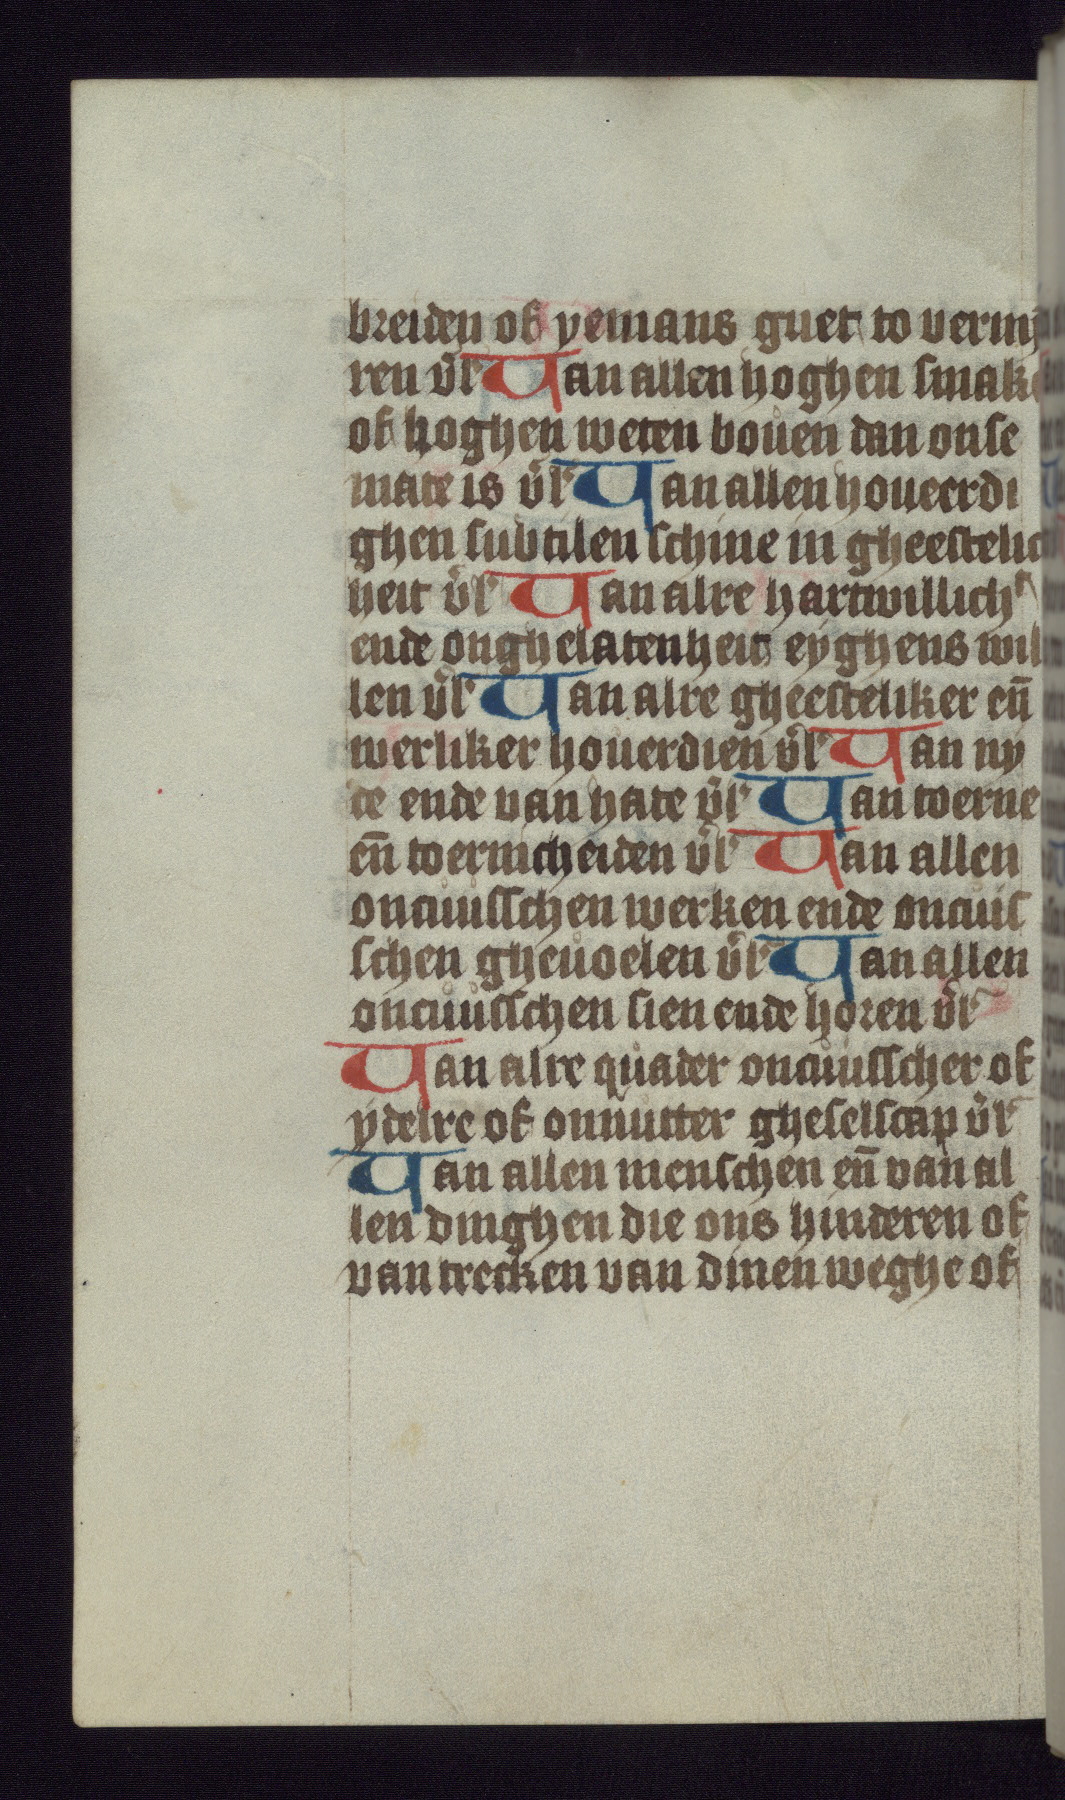 breiden of yemans guet to vermy
ren v̄l Van allen hoghen smake
of hoghen weten bouen dan onse
mate is v̄l Van allen houeerdi
ghen subtilen schine in gheestelic
heit v̄l Van alre hartwillich
ende onghelatenheit eyghens wil
len v̄l Van alre gheesteliker en̄
werliker houerdien v̄l Van ny
de ende van hate v̄l Van toerne
en̄ toernicheiden v̄l Van allen
oncuusschen werken ende oncuus
schen gheuoelen v̄l Van allen
oncuusschen sien ende horen v̄l
Van alre quader oncuusscher of
ydelre of onnutter gheselscap v̄l
Van allen menschen en̄ van al
len dinghen die ons hinderen of
van trecken van dinen weghe of